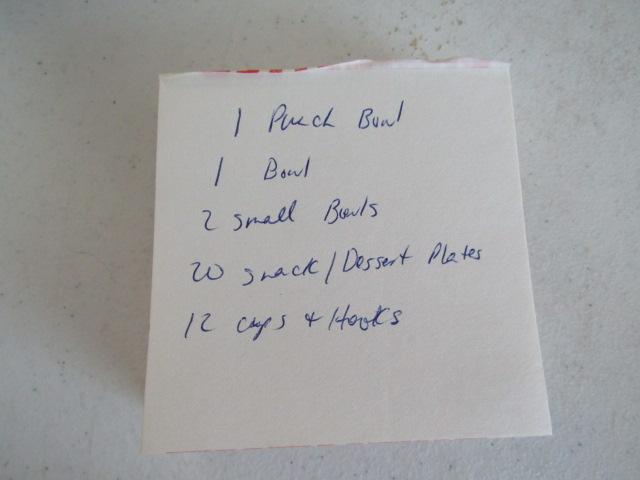 1 Punch Bowl
1 Bowl
2 small Bowls
20 snack/Dessert Plates
12 cups + Hooks